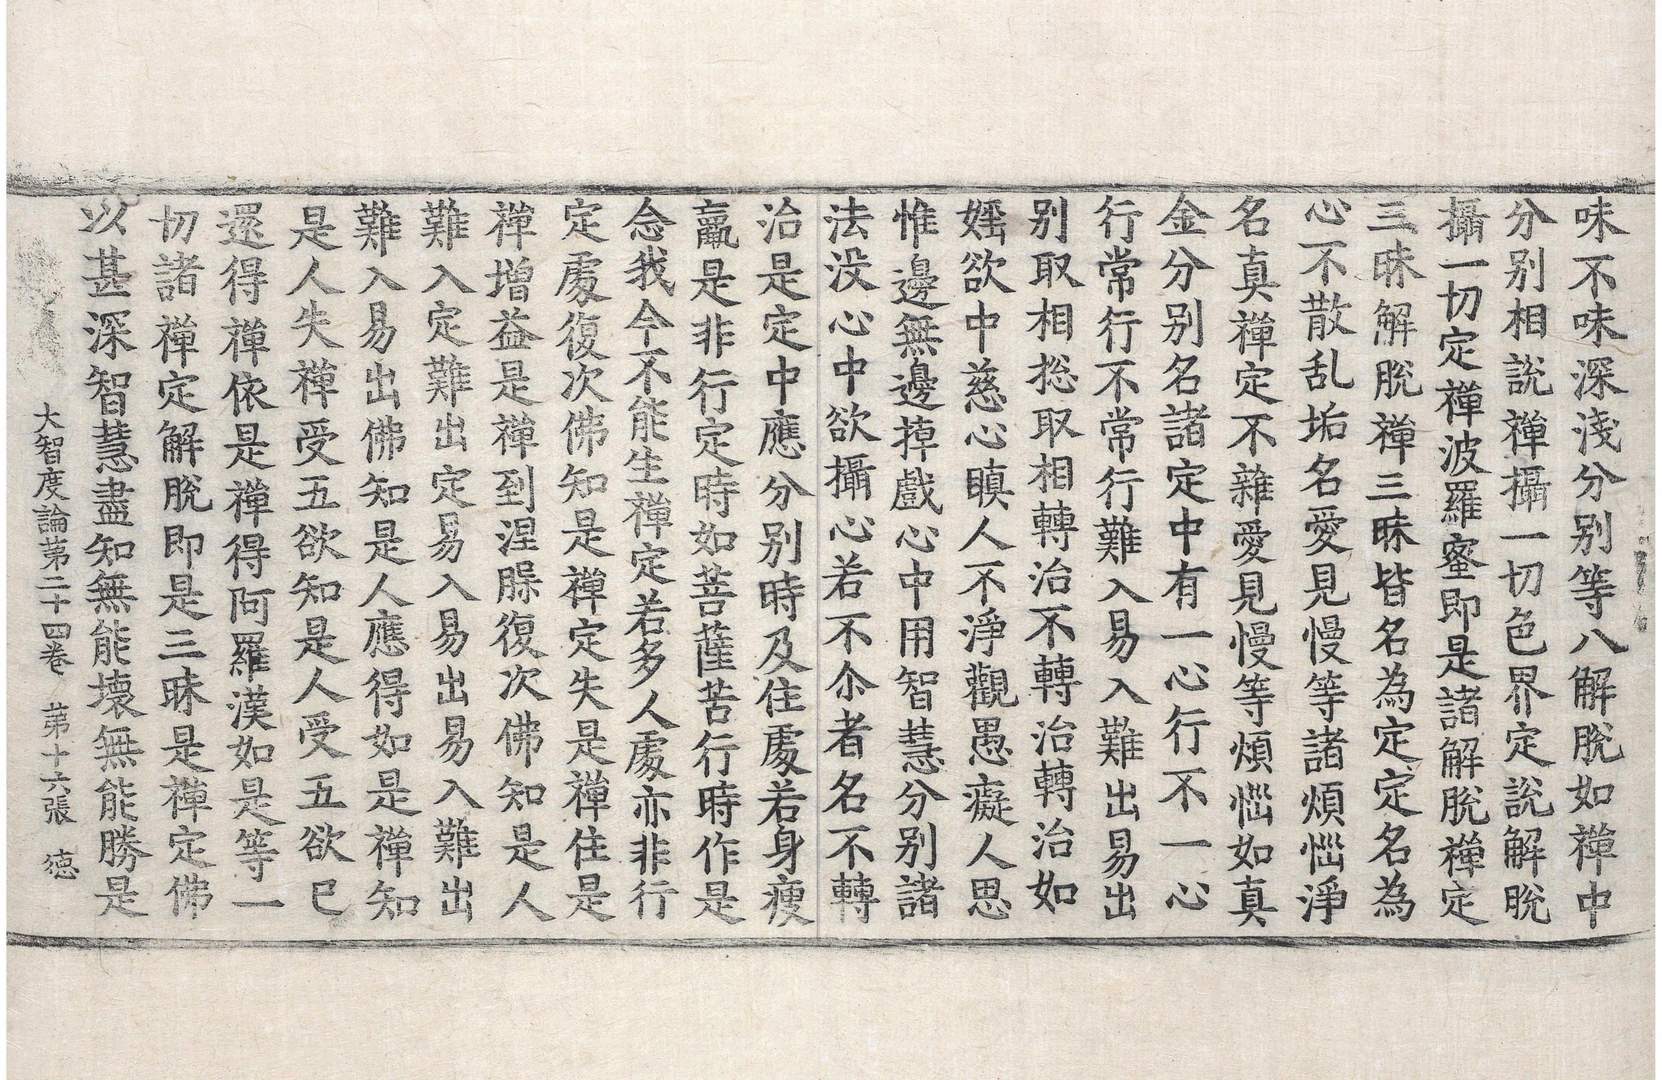 味不味深淺分别等八解脫如禪中
分别相說禪攝一切色界定說解脫
攝一切定禪波羅蜜即是諸解脫禪定
三昧解脫禪三昧皆名為定定名為
心不散乱垢名愛見慢等諸煩惱淨
名真禪定不雜愛見慢等煩惱如真
金分别名諸定中有一心行不一心
行常行不常行難入易入難出易出
别取相捴取相轉治不轉治轉治如
婬欲中慈心瞋人不淨觀愚癡人思
惟邊無邊掉戲心中用智慧分别諸
法没心中欲攝心若不尒者名不轉
治是定中應分别時及住處若身瘦
羸是非行定時如菩薩苦行時作是
念我今不能生禪定若多人處亦非行
定處復次佛知是禪定失是禪住是
禪增益是禪到涅脲復次佛知是人
難入定難出定易入易出易入難出
難入易出佛知是人應得如是禪知
是人失禪受五欲知是人受五欲已
還得禪依是禪得阿羅漢如是等一
切諸禪定解脫即是三昧是禪定佛
以甚深智慧盡知無能壞無能勝是
大智度論第二十四卷 第十六張 徳